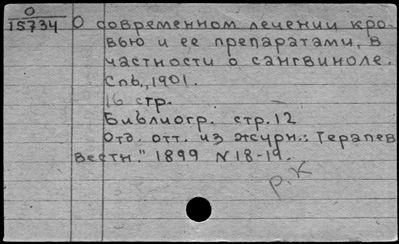 О
15734
О современном лечении кро-
вью и ее препаратами, в
частности о сангвиноле.
Спб., 1901.
16 стр.
Библиогр. стр. 12
Отд. отт. из журн.: Терапев
Вестн." 1899 N 18-19.
Р. К